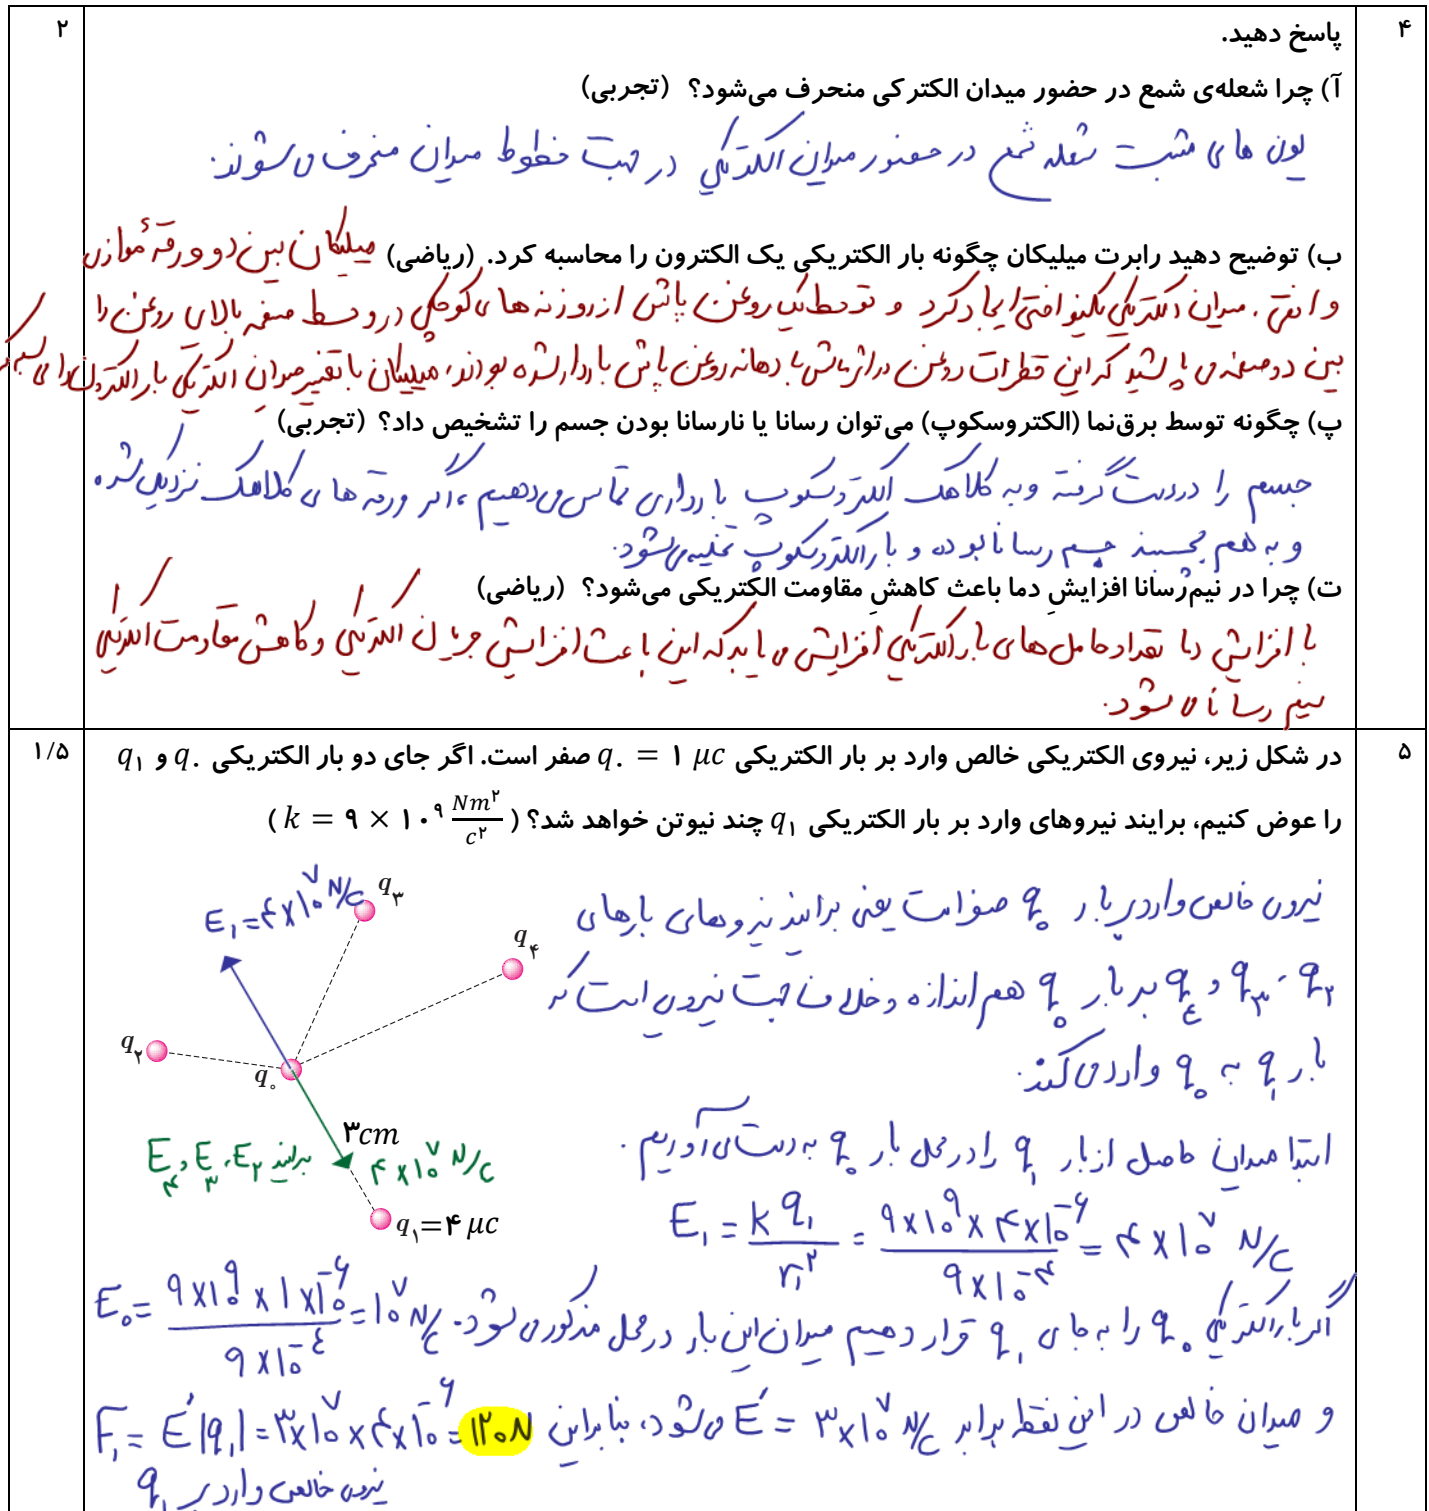 ۴
۲
پاسخ دهید.
آ) چرا شعله‌ی شمع در حضور میدان الکترکی منحرف می‌شود؟ (تجربی)
یون های مثبت شعله شمع در حضور میدان الکتریکی در جهت خطوط میدان منحرف می شوند.
ب) توضیح دهید رابرت میلیکان چگونه بار الکتریکی یک الکترون را محاسبه کرد. (ریاضی) میلیکان بین دو ورقهٔ موازی
و افقی، میدان الکتریکی یکنواختی ایجاد کرد و توسط یک روغن پاش از روزنه های کوچکی در وسط صفحه بالای روغن را
بین دو صفحه می پاشید که این قطرات روغن در اثر مالش با دهانه روغن پاش باردار شده بودند، میلیکان با تغییر میدان الکتریکی بار الکترون را
پ) چگونه توسط برق‌نما (الکتروسکوپ) می‌توان رسانا یا نارسانا بودن جسم را تشخیص داد؟ (تجربی)
جسم را در دست گرفته و به کلاهک الکتروسکوپ بارداری تماس می دهیم، اگر ورقه های کلاهک نزدیک شده
و به هم بچسبند جسم رسانا بوده و بار الکتروسکوپ تخلیه می شود.
ت) چرا در نیم‌رسانا افزایشِ دما باعث کاهشِ مقاومت الکتریکی می‌شود؟ (ریاضی)
با افزایش دما تعداد حامل های بار الکتریکی افزایش می یابد که این باعث افزایش جریان الکتریکی و کاهش مقاومت الکتریکی
نیم رسانا می شود.
۵
۱/۵
در شکل زیر، نیروی الکتریکی خالص وارد بر بار الکتریکی q₀ = ۱ μc صفر است. اگر جای دو بار الکتریکی q₀ و q₁
را عوض کنیم، برایند نیروهای وارد بر بار الکتریکی q₁ چند نیوتن خواهد شد؟ ( k = ۹ × ۱۰⁹ Nm²/c² )
E₁ = ۴×۱۰⁷ N/c
q₃
q₄
q₂
q₀
۳cm
برایند E₂، E₃ و E₄
۴×۱۰⁷ N/c
q₁=۴ μc
نیروی خالص وارد بر بار q₀ صفر است یعنی برایند نیروهای بارهای
q₂، q₃ و q₄ بر بار q₀ هم اندازه و خلاف جهت نیرویی است که
بار q₁ به q₀ وارد می کند.
ابتدا میدان حاصل از بار q₁ را در محل بار q₀ به دست می آوریم.
E₁ = kq₁/r₁² = ۹×۱۰⁹×۴×۱۰⁻⁶/۹×۱۰⁻⁴ = ۴×۱۰⁷ N/c
اگر بار الکتریکی q₀ را به جای q₁ قرار دهیم میدان این بار در محل مذکور می شود. E₀ = ۹×۱۰⁹×۱×۱۰⁻⁶/۹×۱۰⁻⁴ = ۱۰⁷ N/c
و میدان خالص در این نقطه برابر E′ = ۳×۱۰⁷ N/c می شود، بنابراین F₁ = E′|q₁| = ۳×۱۰⁷×۴×۱۰⁻⁶ = ۱۲۰N
نیروی خالص وارد بر q₁